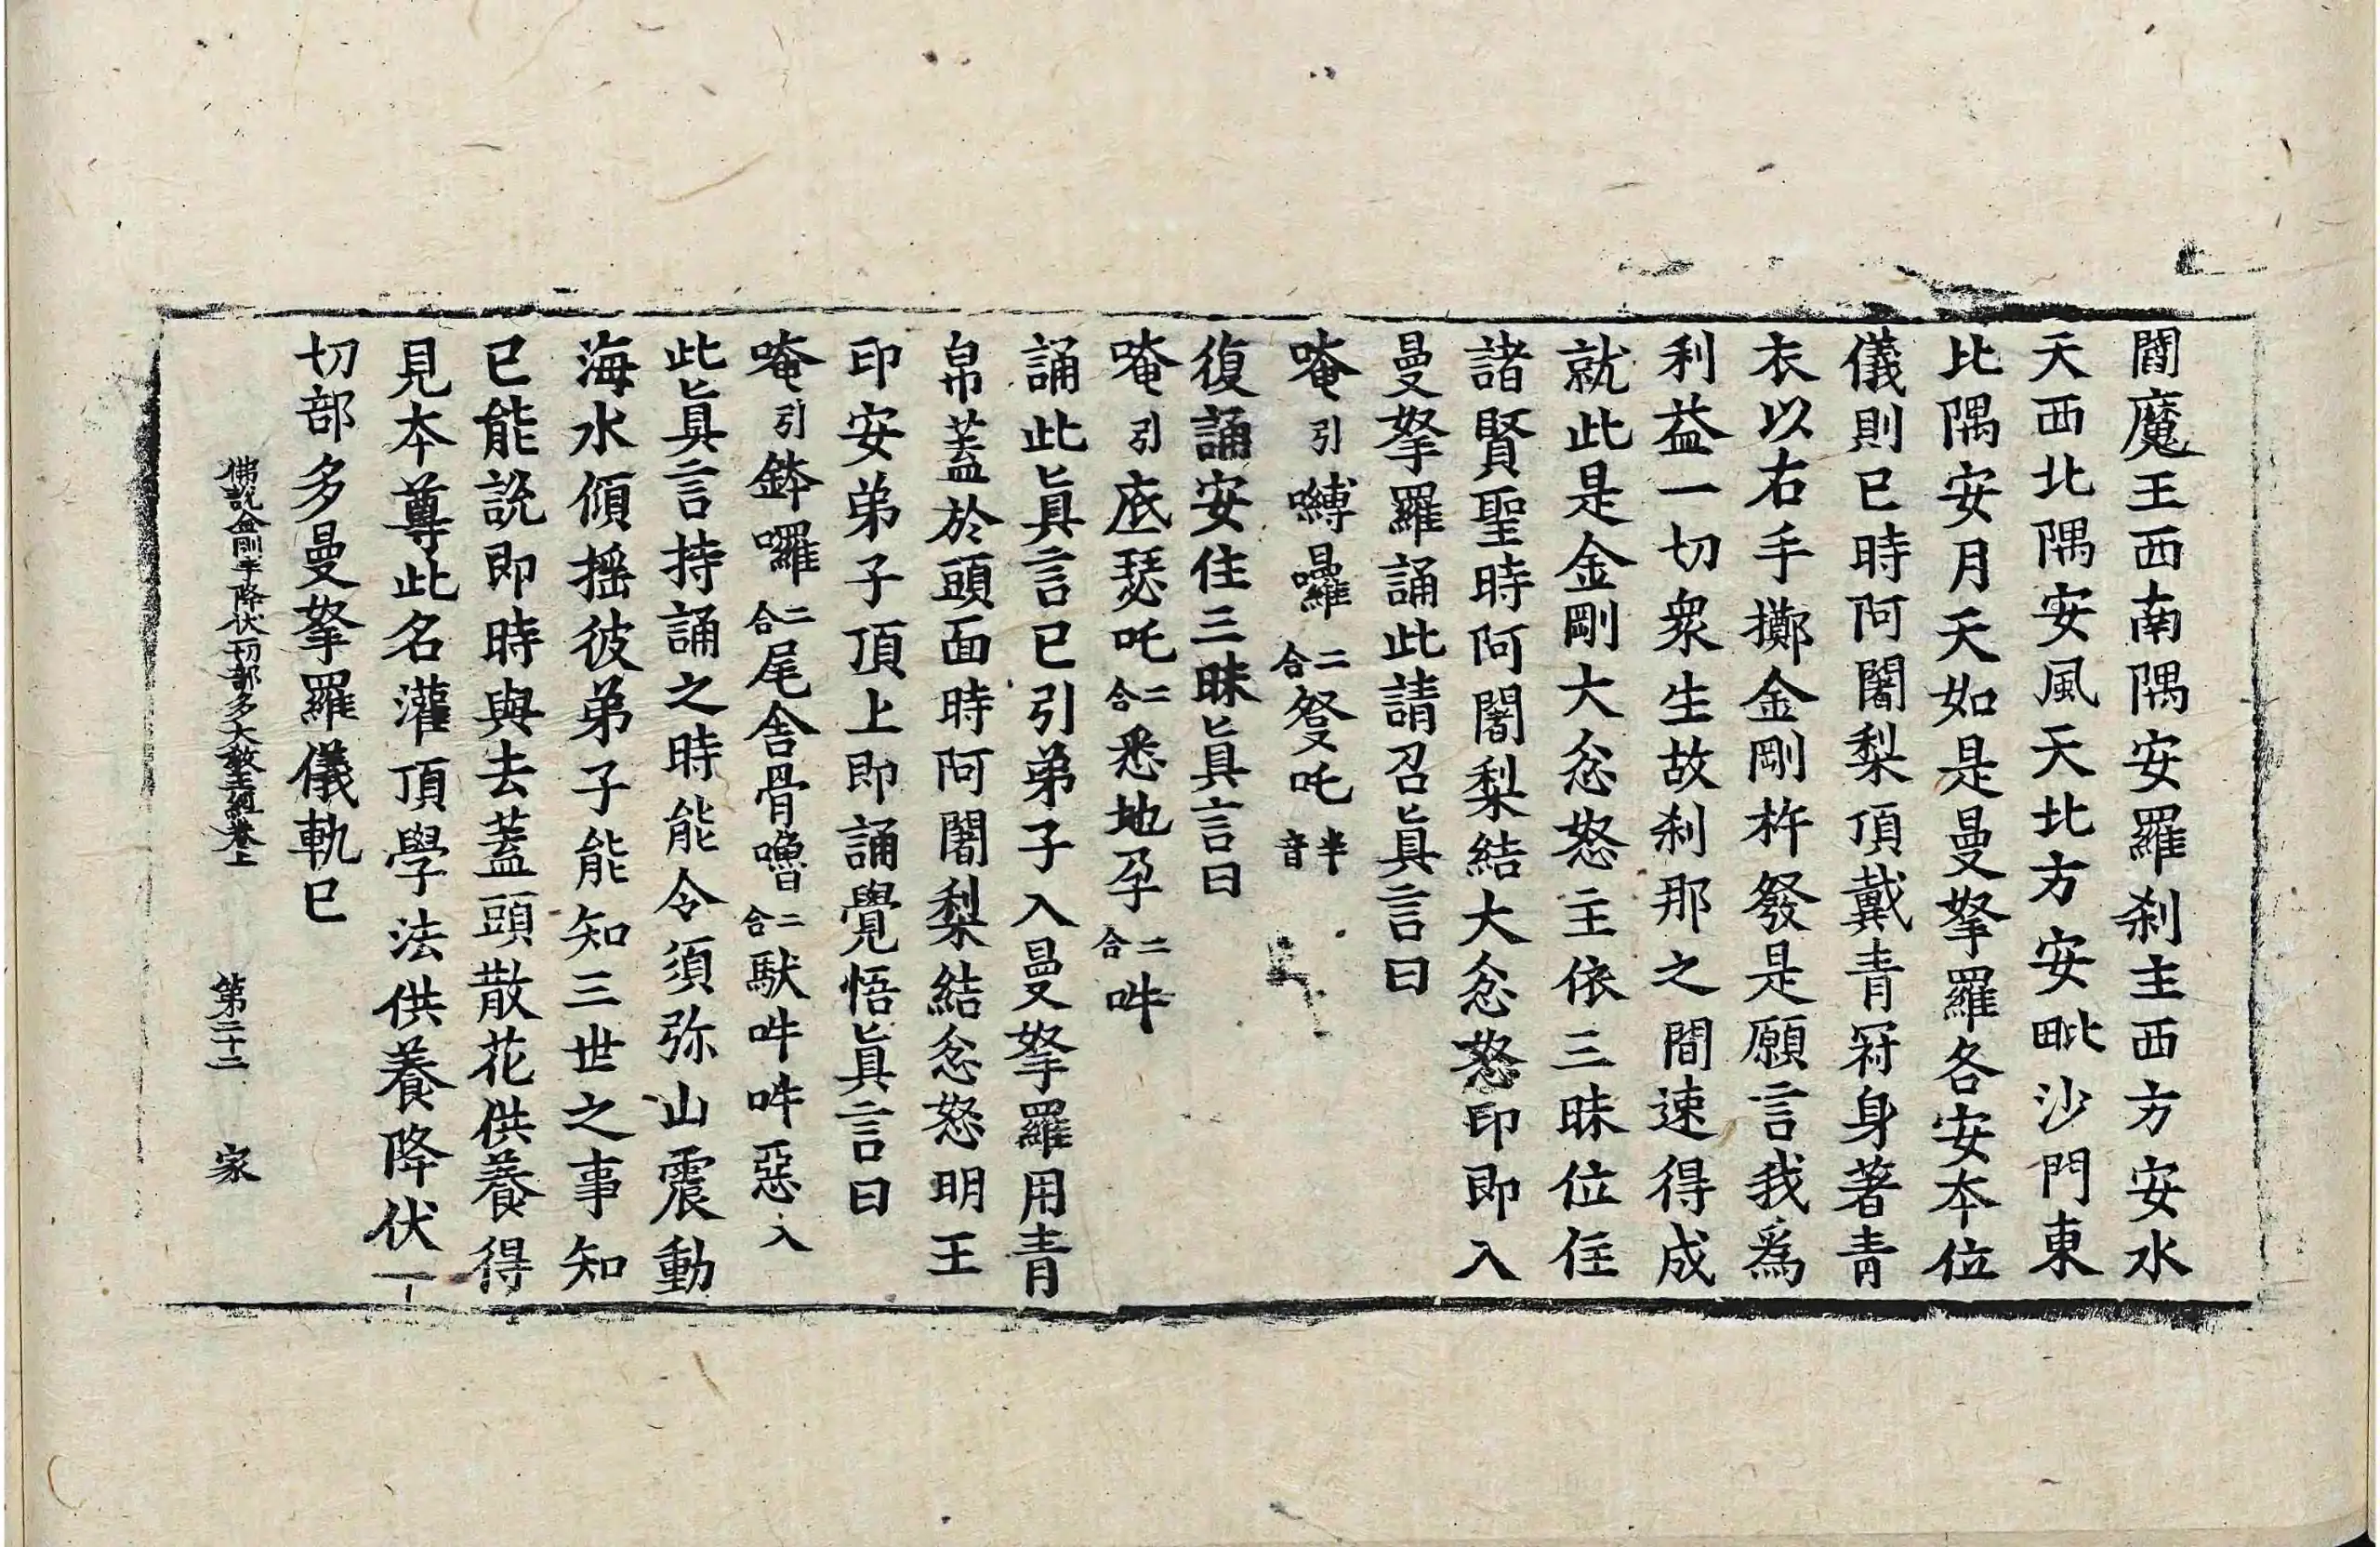 閻魔王西南隅安羅刹主西方安水
天西北隅安風天北方安毗沙門東
北隅安月天如是曼拏羅各安本位
儀則已時阿闍梨頂戴青冠身著青
衣以右手擲金剛杵發是願言我爲
利益一切衆生故刹那之間速得成
就此是金剛大忿怒主依三昧位住
諸賢聖時阿闍梨結大忿怒印即入
曼拏羅誦此請召眞言曰
唵引嚩囉二合發吒半音
復誦安住三昧眞言曰
唵引底瑟吒二合悉地孕二合吽
誦此眞言已引弟子入曼拏羅用青
帛蓋於頭面時阿闍梨結忿怒明王
印安弟子頂上即誦覺悟眞言曰
唵引鉢囉二合尾舍骨嚕二合馱吽吽惡入
此眞言持誦之時能令須弥山震動
海水傾摇彼弟子能知三世之事知
已能說即時與去蓋頭散花供養得
見本尊此名灌頂學法供養降伏一
切部多曼拏羅儀軌已
佛說金剛手降伏一切部多大教王經卷上 第二十二 家